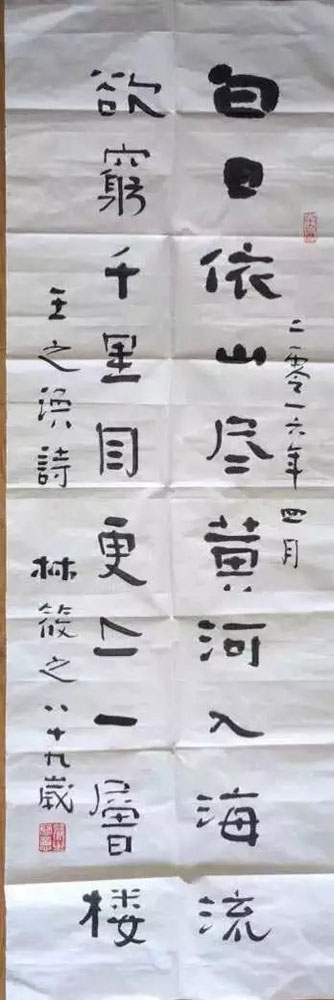 二零一六年四月
白日依山尽黄河入海流
欲窮千里目更上一層楼
王之渙詩
林筱之八十九歳